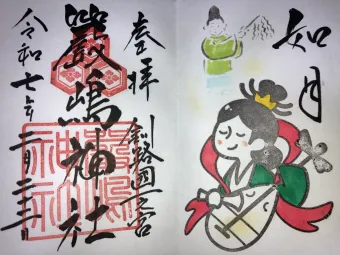 如月
奉拝
釧路國一之宮
厳嶋神社
令和七年二月二十三日